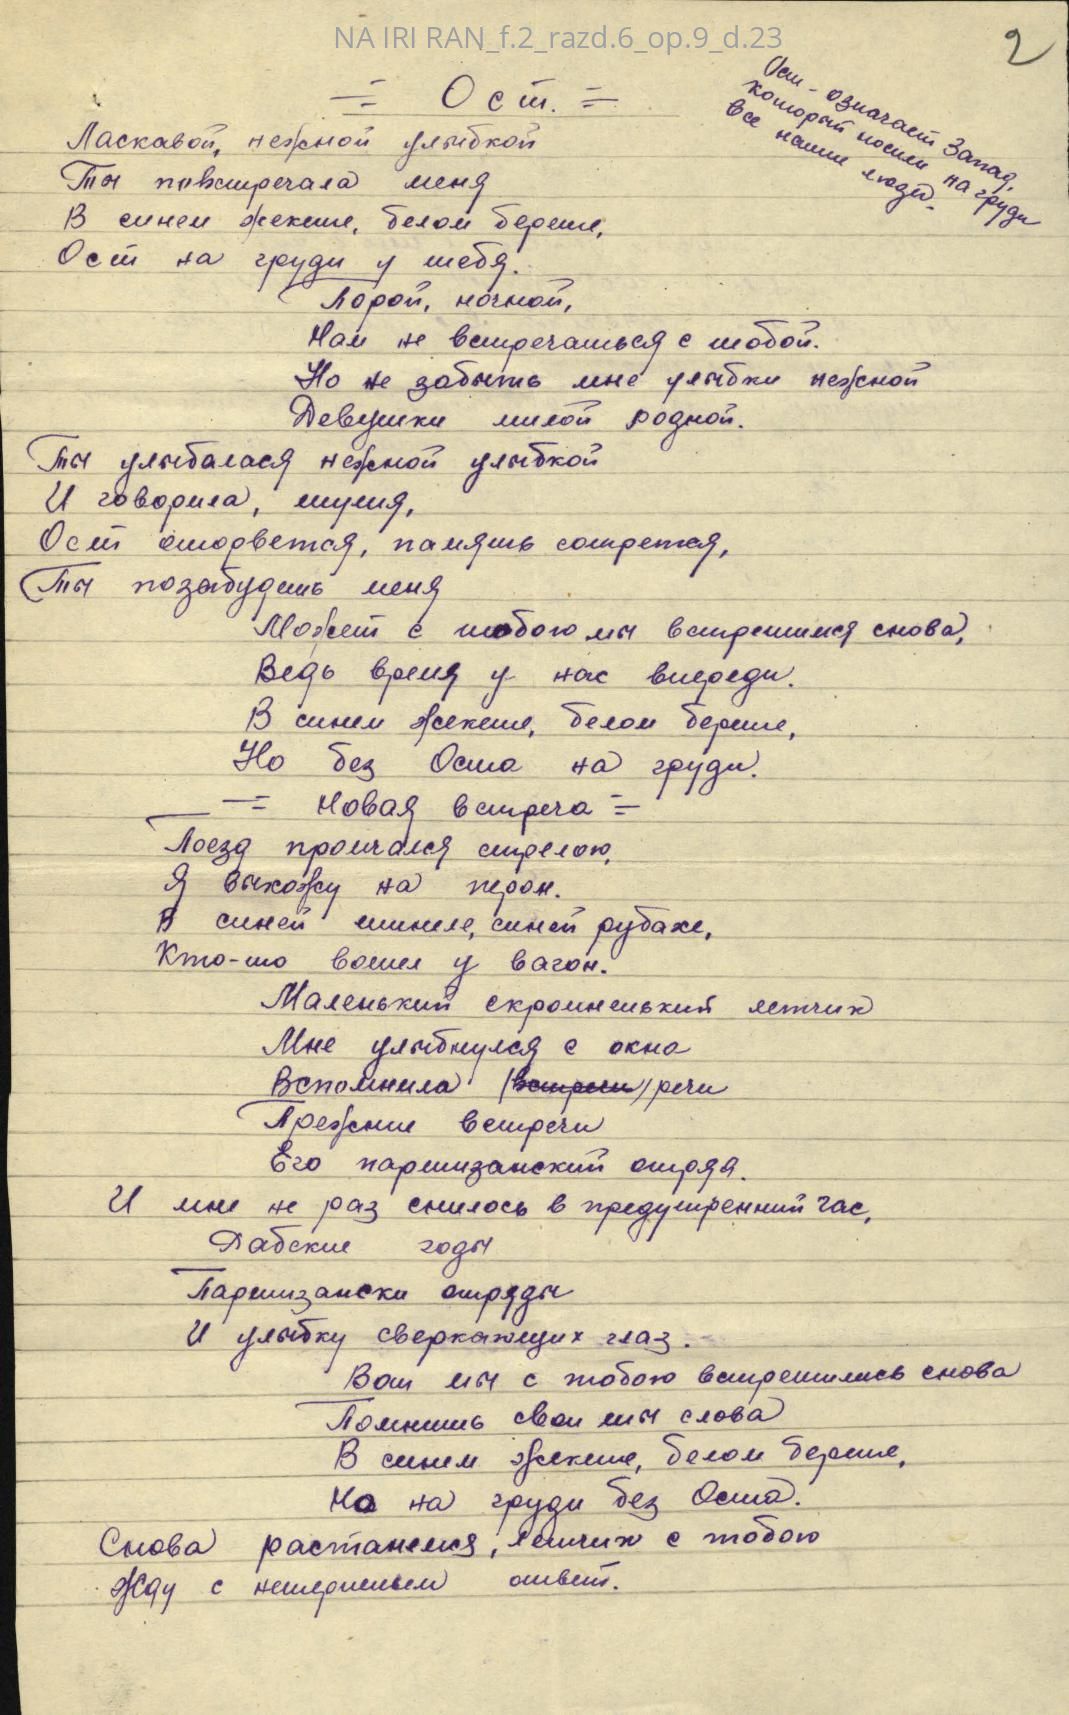 NA IRI RAN_f.2_razd.6_op.9_d.23
2
= Ост. =
Ост - означает Запад,
который носили на груди
все наши люди.
Ласкавой, нежной улыбкой
Ты повстречала меня
В синем жекете, белом берете,
Ост на груди у тебя.
Порой, ночной,
Нам не встречаться с тобой.
Но не забыть мне улыбки нежной
Девушки милой родной.
Ты улыбалася нежной улыбкой
И говорила, шутя,
Ост оторвется, память сотрется,
Ты позабудешь меня
Может с тобою мы встретимся снова,
Ведь время у нас впереди.
В синем жекете, белом берете,
Но без Оста на груди.
= Новая встреча =
Поезд промчался стрелою,
Я выхожу на перон.
В синей шинеле, синей рубахе,
Кто-то вошел у вагон.
Маленький скромненький летчик
Мне улыбнулся с окна
Вспомнила (встречи) речи
Прежние встречи
Его партизанский отряд.
И мне не раз снилось в предутренний час,
Лабские годы
Партизански отряды
И улыбку сверкающих глаз.
Вот мы с тобою встретились снова
Помнишь свои ты слова
В синем жекете, белом берете,
Но на груди без Оста.
Снова растанемся, летчик с тобою
Жду с нетерпеньем ответ.